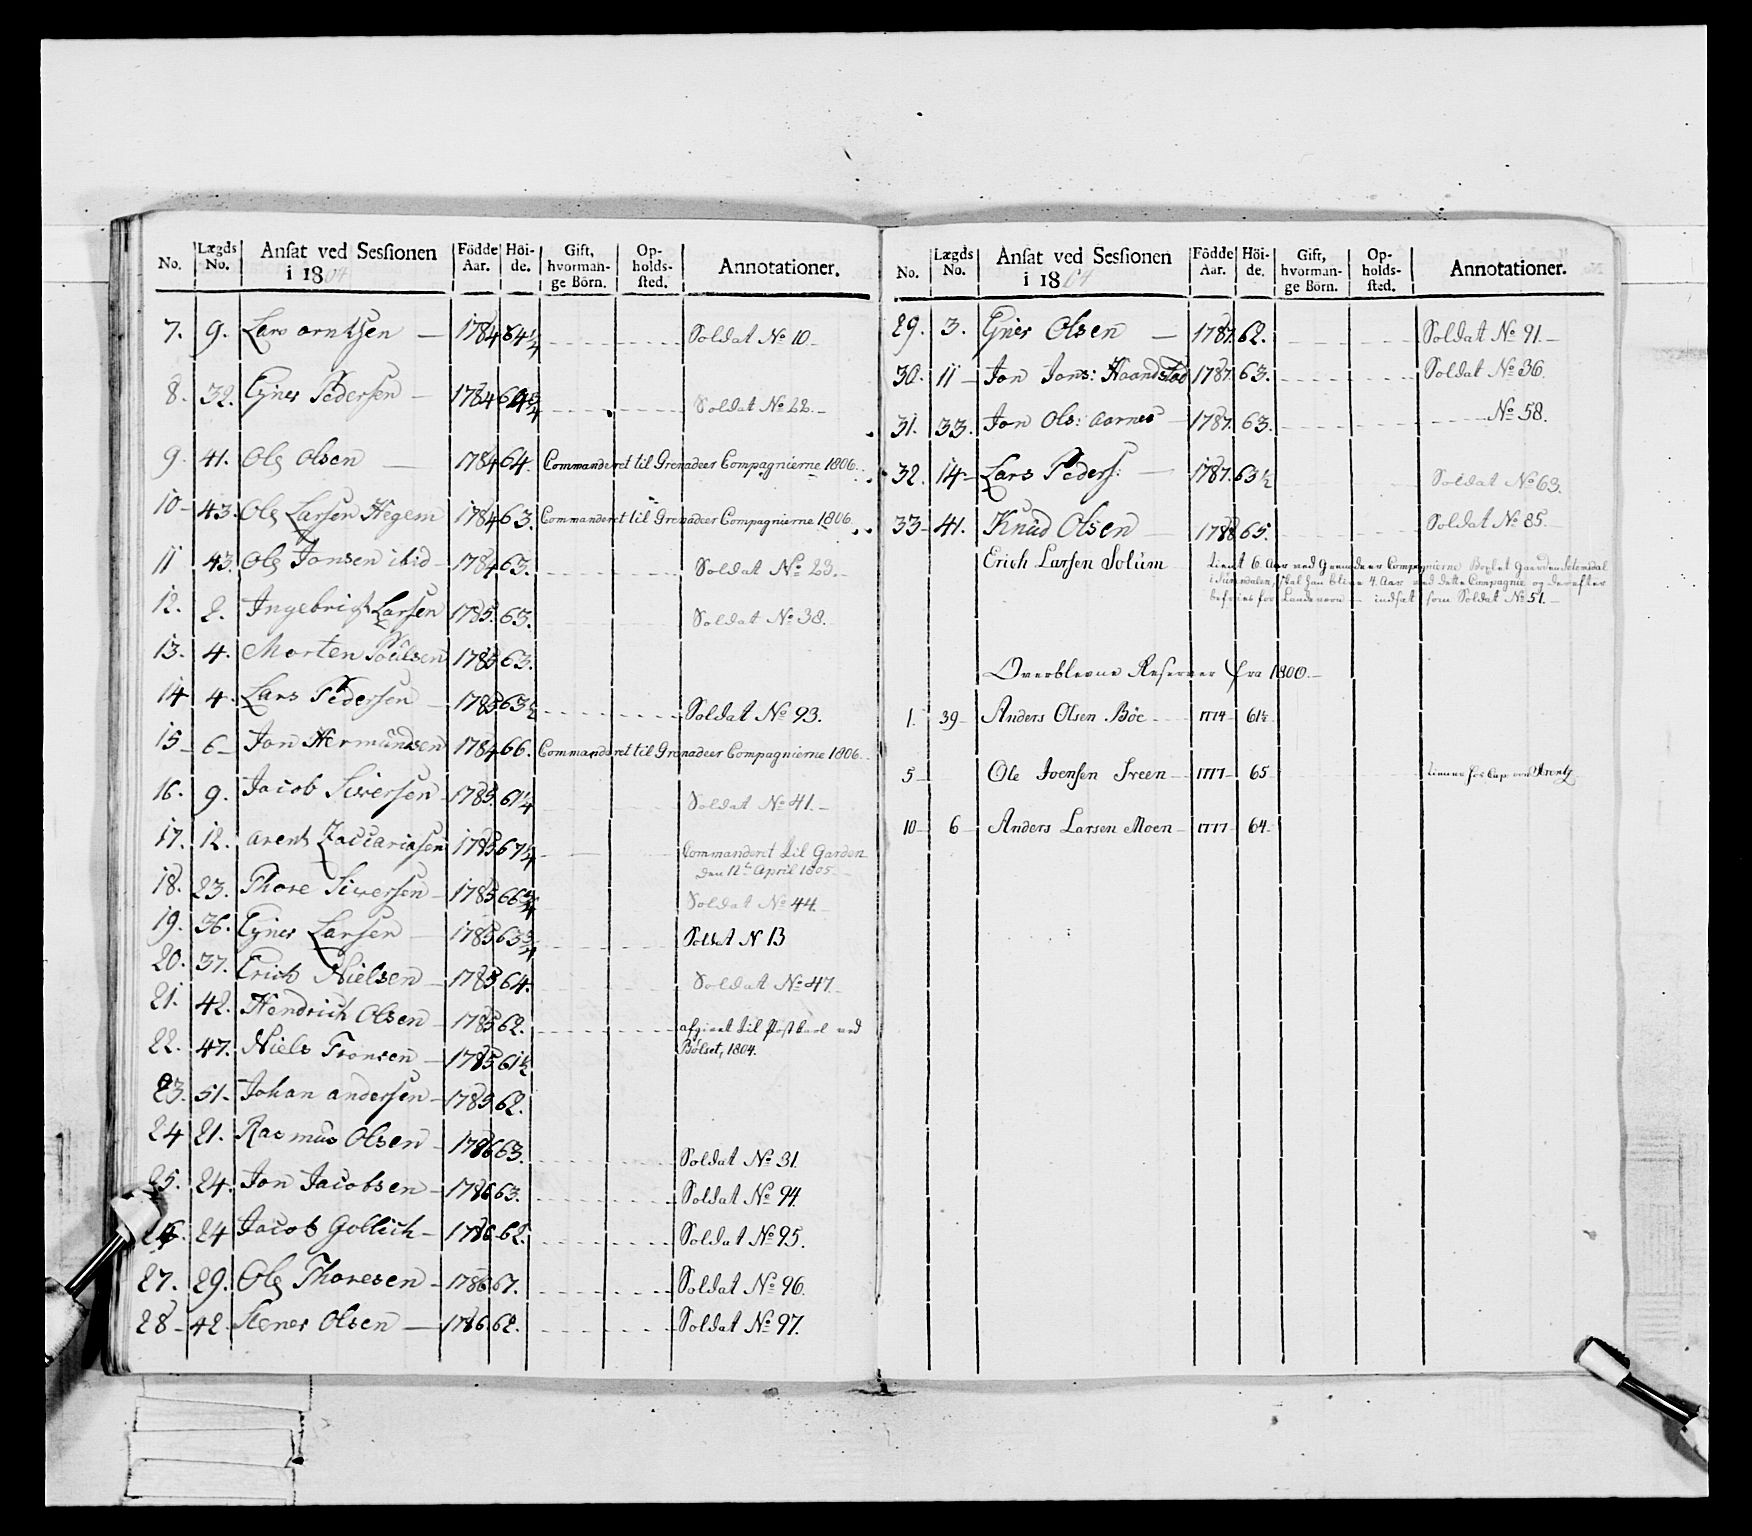 No. Lægds No. Ansat ved Sessionen i 1804 Födde Aar. Höi-de. Gift, hvorman-ge Börn. Op-holds-sted. Annotationer.
7. 9. Lars arntsen — 1784 64 1/4 Soldat No 10.
8. 32. Ejner Pedersen — 1784 64 3/4 Soldat No 22.
9. 41. Ole Olsen — 1784 64. Commanderet til Grenadeer Compagnierne 1806.
10 43. Ole Larsen Hegem 1784 63. Commanderet til Grenadeer Compagnierne 1806.
11 43. Ole Jonsen ibid 1784 63. Soldat No 23.
12. 2. Ingebrigt Larsen 1785. 63. Soldat No 38.
13. 4. Morten Poulsen 1785 63.
14 4. Lars Pedersen 1785 63 1/2 Soldat No 93.
15 6 Jon Hermundsen 1784 66. Commanderet til Grenadeer Compagnierne 1806.
16. 9. Jacob Siversen 1785. 61 1/4 Soldat No 41.
17. 12. arent Zacciariasen 1785 67 1/4 Commanderet til Garden
den 12te April 1805.
18. 23. Thore Siversen 1785 66 3/4 Soldat No 44.
19. 36. Ejner Larsen 1785 63 3/4 Soldat N 13
20. 37. Erich Nielsen 1785 64. Soldat No 47.
21. 42. Hendrich Olsen 1785 62. afgivet til Postkarl ved
Bølset, 1804.
22. 47. Niels Tronsen 1785 61 1/2
23. 51. Johan andersen 1785 62.
24 21. Rasmus Olsen 1786 63. Soldat No 31.
25. 24. Jon Jacobsen 1786 63. Soldat No 94.
26. 24 Jacob Gollich 1786 62. Soldat No 95.
27. 29. Ole Thoresen 1786 67. Soldat No 96.
28 42. Stener Olsen — 1786. 62. Soldat No 97.
No. Lægds No. Ansat ved Sessionen i 1804 Födde Aar. Höi-de. Gift, hvorman-ge Börn. Op-holds-sted. Annotationer.
29. 3. Ejner Olsen — 1787. 62. Soldat No 91.
30. 11 Jon Jons: Haandstad 1787. 63. Soldat No 36.
31. 33. Jon Ols: Aarnes 1787. 63. No 58.
32. 14 Lars Peders: — 1787. 63 1/2 Soldat No 63.
33 41. Knud Olsen — 1788 65. Soldat No 85.
Erich Larsen Solum tient 6 Aar ved Grenadeer Compagnierne Boxlet Gaarden
i Surendalen, skal han blive 4. Aar ved dette Compagnie og derefter
befries for Landeværn indsat som Soldat No 51.
Overblevne Reserver fra 1800.
1. 39 Anders Olsen Böe 1774 61 1/2
5 Ole Joensen Sveen 1777 65
10 6 Anders Larsen Moen 1777 64